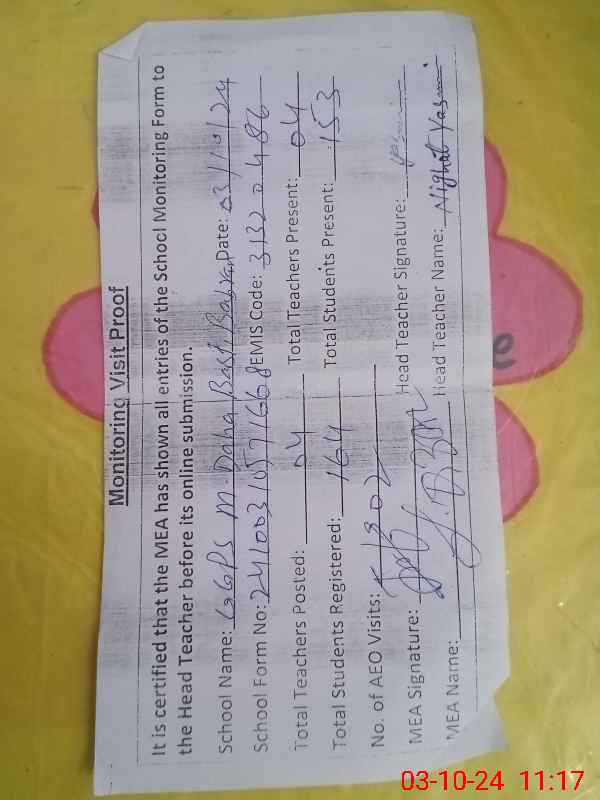 Monitoring Visit Proof
It is certified that the MEA has shown all entries of the School Monitoring Form to
the Head Teacher before its online submission.
School Name: GGPS M. Daha Basti Date: 03/10/24
School Form No: EMIS Code: 31320486
Total Teachers Posted: 04 Total Teachers Present: 04
Total Students Registered: 164 Total Students Present: 153
No. of AEO Visits:
MEA Signature: Head Teacher Signature:
MEA Name: Head Teacher Name: Nighat Yasmin
03-10-24 11:17